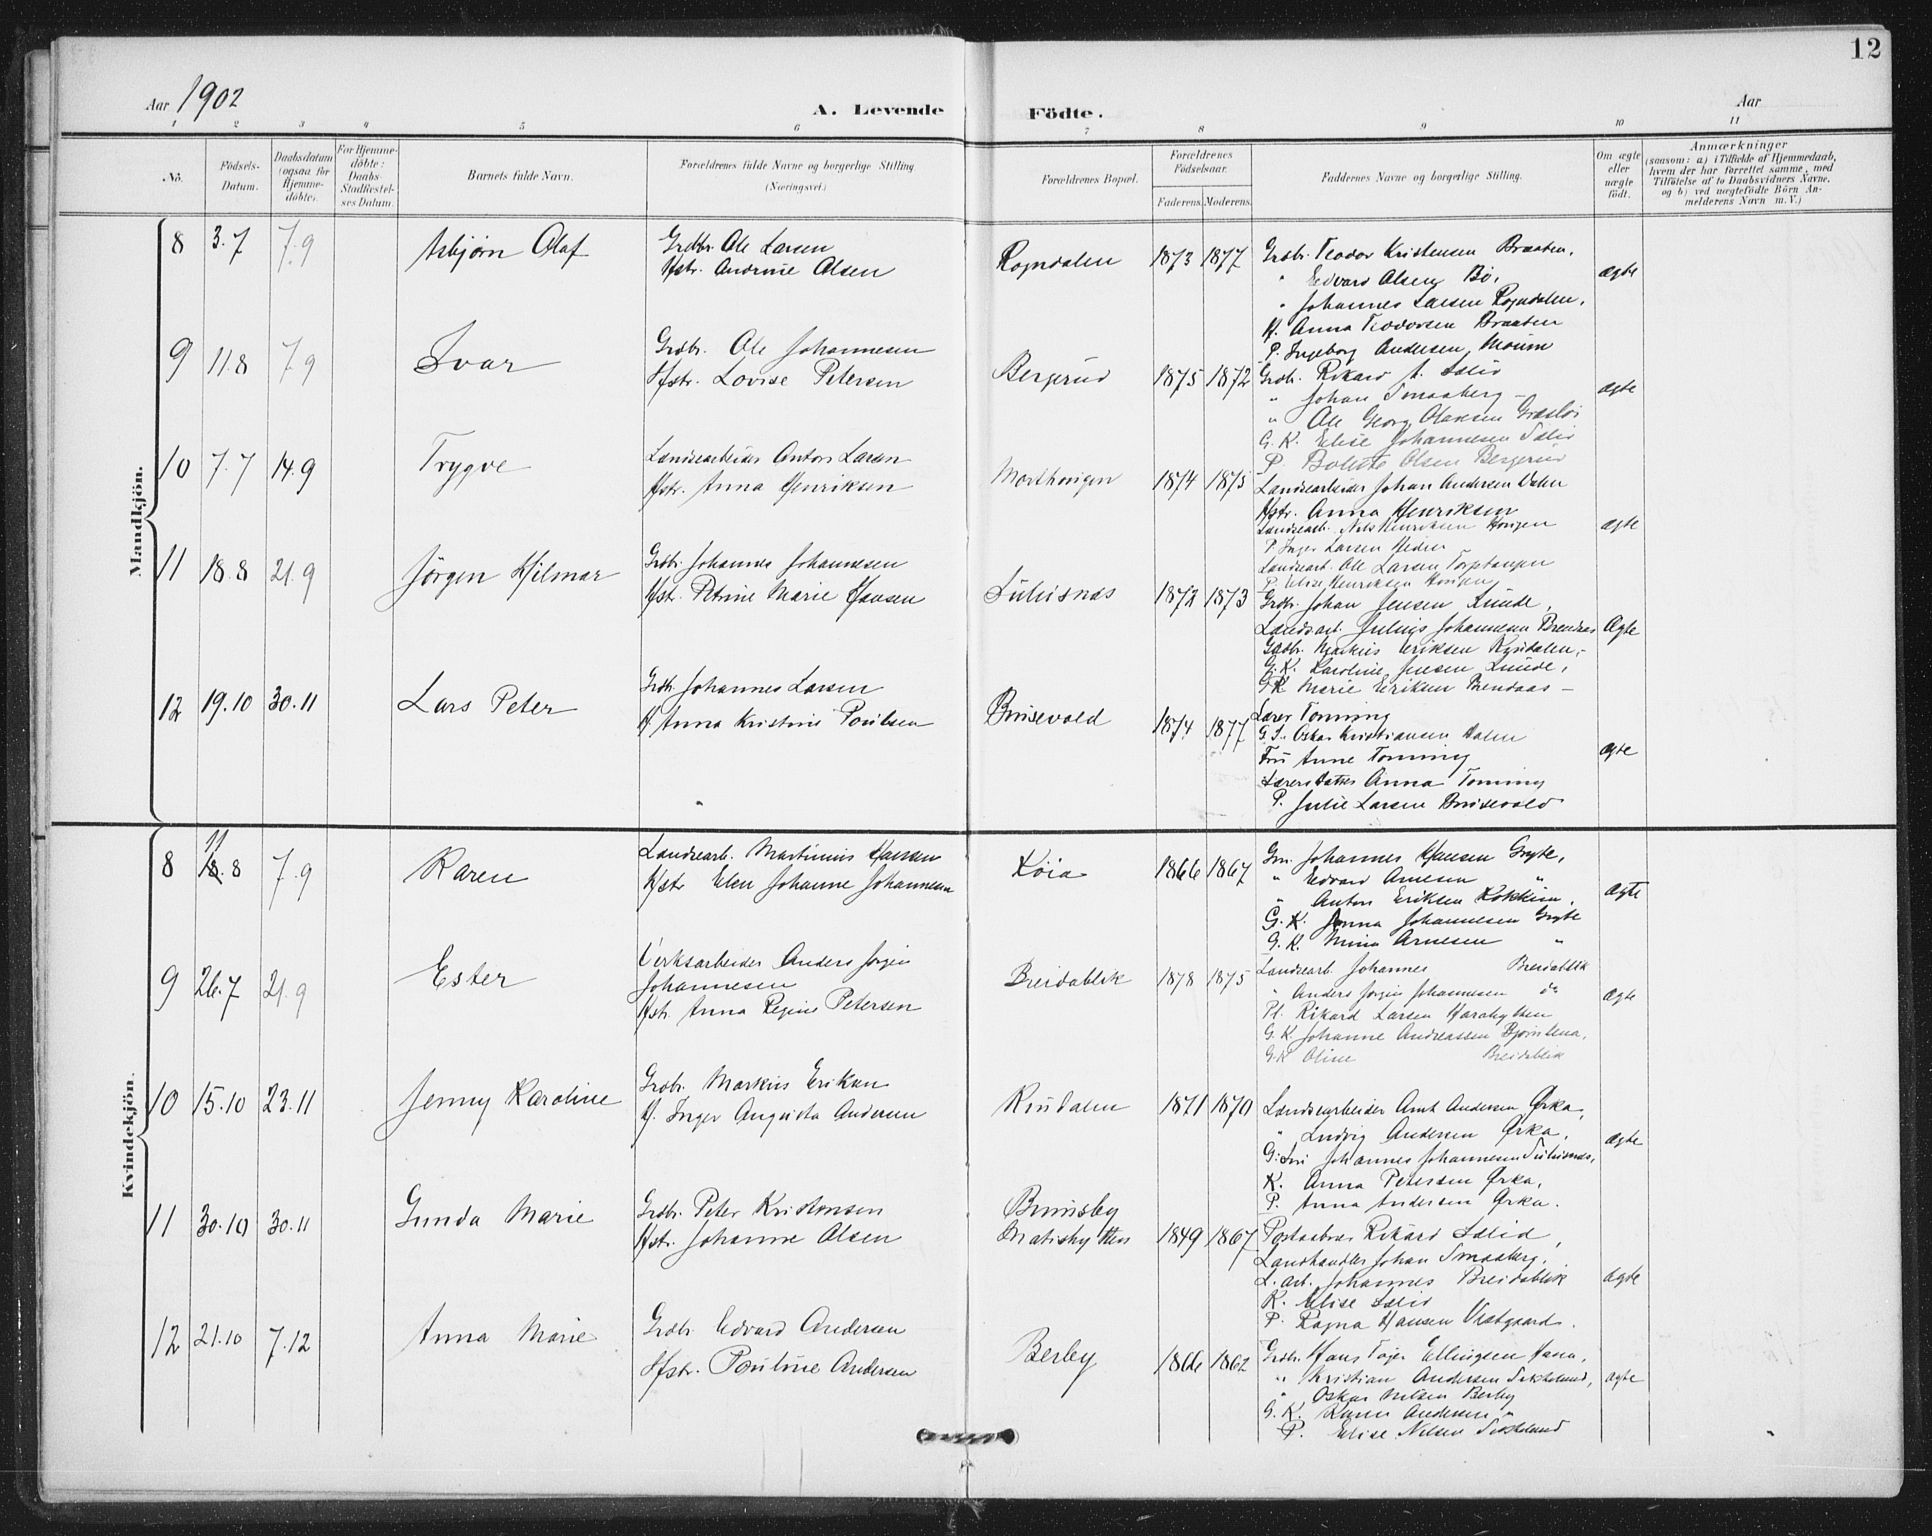 12
Aar 1902
A. Levende Födte.
Aar
1 2 3 4 5 6 7 8 9 10 11
No.
Födsels-Datum.
Daabsdatum (ogsaa for Hjemme-döbte).
For Hjemme-döbte: Daabs-Stadfæstel-ses Datum.
Barnets fulde Navn.
Forældrenes fulde Navne og borgerlige Stilling. (Næringsvei.)
Forældrenes Bopæl.
Forældrenes Födselsaar.
Faderens. Moderens.
Faddernes Navne og borgerlige Stilling.
Om ægte eller uægte födt.
Anmærkninger
(saasom: a) i Tilfælde af Hjemmedaab, hvem der har forrettet samme, med Tilföielse af to Daabsvidners Navne, og b) ved uægtefödte Börn An-melderens Navn m.V.)
Mandkjön.
8 3.7 7.9 Asbjørn Olaf
Grdbr. Ole Larsen
Hstr. Andrine Olsen
Rogndalen 1873 1877
Grdbr. Teodor Kristensen Braaten,
" Edvard Olsen Bø,
" Johannes Larsen Rogndalen,
H. Anna Teodorsen Braaten
P. Ingeborg Andersen Moum
ægte
9 11.8 7.9 Ivar
Grdbr. Ole Johannesen
Hstr. Lovise Petersen
Bergerud 1875 1872
Grdb. Rikard A. Sælid
" Johan Smaaberg
" Ole Georg Olausen
G. K. Elise Johannesen Sælid
P. Olsen Bergerud
ægte
10 7.7 14.9 Trygve
Landearbeider Anton Larsen
Hstr. Anna Henriksen
1874 1875
Landearbeider Johan Andersen Dalen
Hstr. Anna Henriksen
Landearb. Nils Henriksen Hougen
P. Inger Larsen
Landearb. Ole Larsen Torptangen
P. Elise Henriksen Hougen
ægte
11 18.8 21.9 Jørgen Hilmar
Grdb. Johannes Johannesen
Hstr. Petrine Marie Hansen
1872 1873
Grdbr. Johan Jensen Lunde,
Landsarb. Julius Johannesen Brendaas
Grdbr. Markus Eriksen
G. K. Karoline Jensen Lunde,
G K Marie Eriksen Brendaas
Ægte
12 19.10 30.11 Lars Peter
Grdb. Johannes Larsen
H Anna Kristine Poulsen
Brusevold 1874 1877
Lærer Tomming
G. S. Oskar Kristiansen Dalen
Fru Anne Tomming
Lærerdatter Anna Tomming
P. Julie Larsen Brusevold
ægte
Kvindekjön.
11
8 18.8 7.9 Karen
Landsearb. Martinius Hansen
Hstr Elen Johanne Johannesen
Køia 1866 1867
Grn. Johannes Hansen Gryte,
" Edvard Arnesen "
" Anton Eriksen Kokkim,
G. K. Anna Johannesen Gryte
G. K. Mina Arnesen "
ægte
9 26.7 21.9 Ester
Verksarbeider Anders Jørgen
Johannesen
Hstr. Anna Regine Petersen
Breidablik 1878 1875
Landsearb. Johannes Breidablik
" Anders Jørgen Johannesen do
Pl. Rikard Larsen Harahytten
G. K. Johanne Andreassen
G K Oline Breidablik
ægte
10 15.10 23.11 Jenny Karoline
Grdbr. Markus Eriksen
H. Inger Augusta Andersen
1871 1870
Landsearbeider Arnt Andersen Ørka,
" Ludvig Andersen Ørka,
G: Søn Johannes Johannesen
K. Anna Petersen Ørka,
P. Anna Andersen Ørka.
ægte
11 30.10 30.11 Gunda Marie
Grdbr. Peter Kristensen
Hstr. Johanne Olsen
Brunsby
Matishytten 1849 1867
Rikard Sælid,
Landhandler Johan Smaaberg,
L. arb. Johannes Breidablik
K. Elise Sælid
P. Ragna Hansen Vestgaard.
ægte
12 21.10 7.12 Anna Marie
Grdbr Edvard Andersen
Hstr. Pouline Andersen
Berby 1866 1862
Grdbr. Hans Ellingsen
" Kristian Andersen
" Oskar Nilsen Berby
G. K. Karen Andersen "
P. Elise Nilsen
ægte